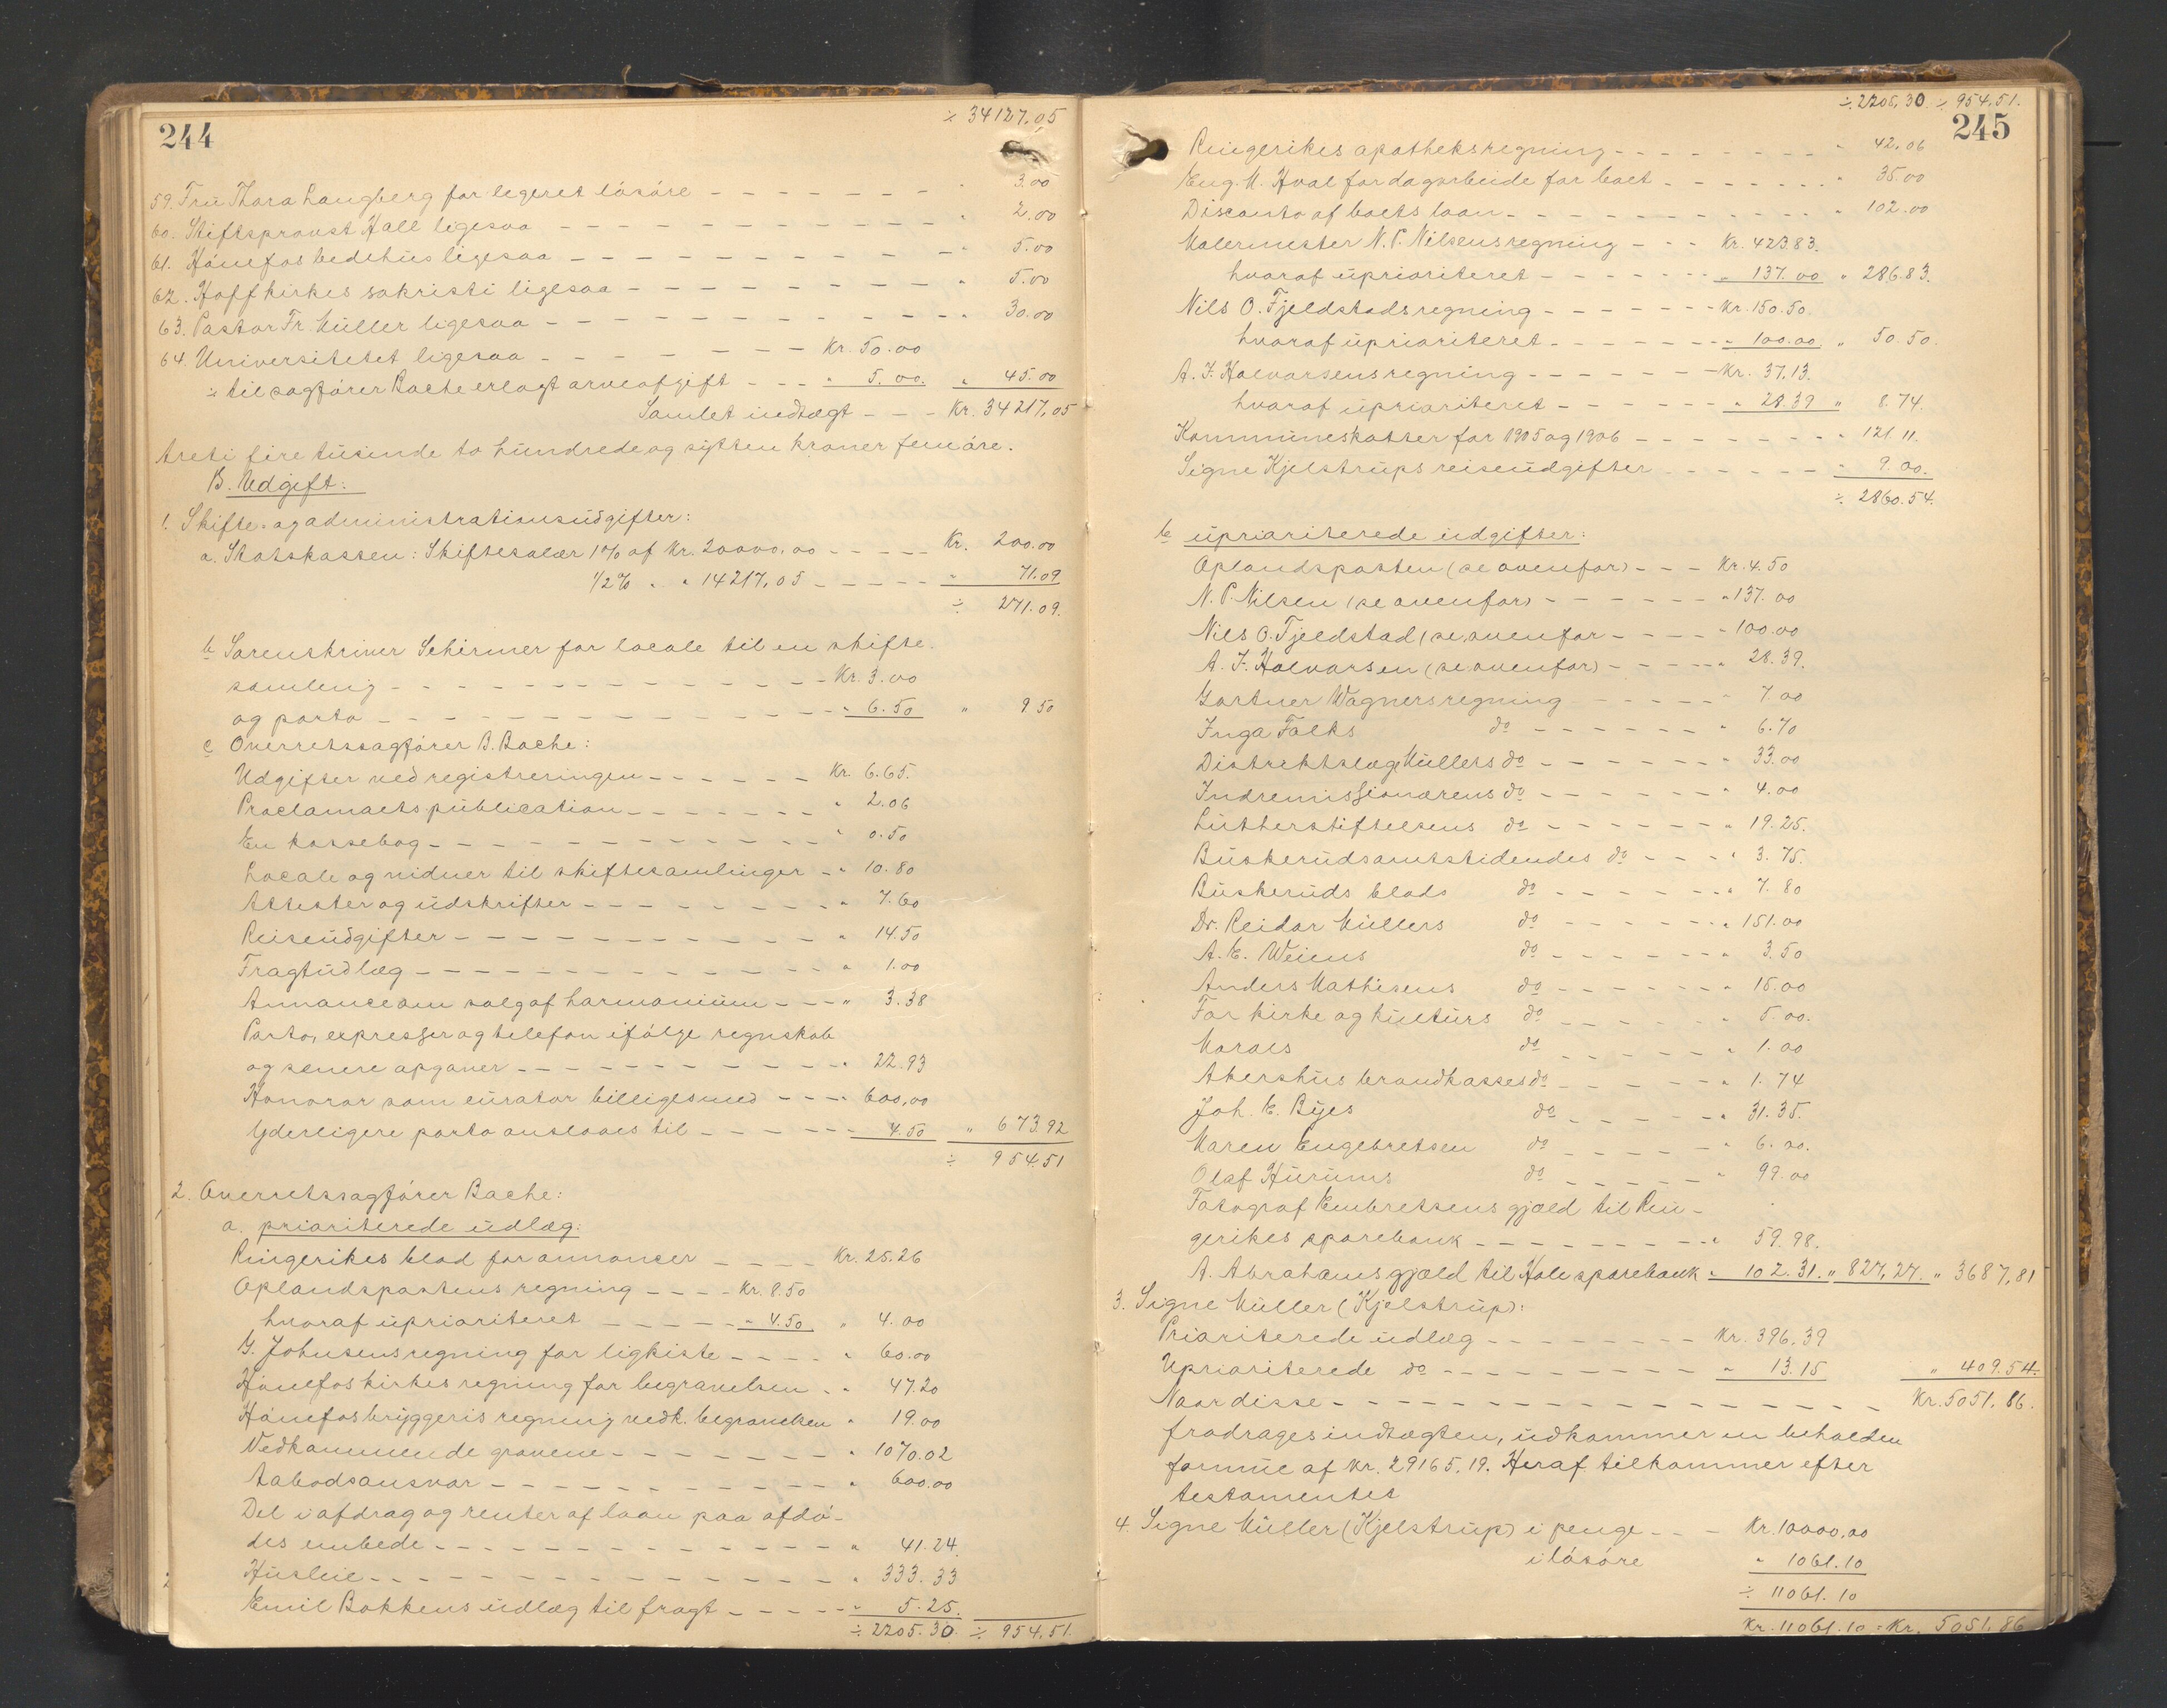 ÷ 34127,05
244
59. Frü Thora Laugberg for legeret løsøre - - - - - - - " 3.00
60. Stiftsprovst Hall ligesaa - - - - - - - - - - " 2.00
61. Hønefos bedehüs ligesaa - - - - - - - - - - " 5.00
62. Hoff kirkes sakristi ligesaa - - - - - - - - " 5.00
63. Pastor Fr. Müller ligesaa - - - - - - - - - - - " 30.00
64. Universitetet ligesaa - - - - - - - Kr. 50.00
÷ til sagfører Bache erlagt arveafgift - - - " 5.00. " 45.00
Samlet indtægt - - - Kr. 34217,05
treti fire tüsinde to hündrede og sÿtten kroner fem øre.
B. Udgift:
1. Skifte- og administrationsüdgifter:
a. Statskassen: Skiftesalær 1% af Kr. 20000.00 - - - - - Kr. 200.00
1/2% " " 14217,05 - - - - - " 71.09
÷ 271.09.
b Sorenskriver Schirmer for locale til en skifte-
samling - - - - - - - - - - - - - Kr. 3.00
og porto - - - - - - - - - - - - - - " 6.50 " 9 50
c Overretssagfører B. Bache:
Udgifter ved registreringen - - - - - - Kr. 6.65.
Proclamaets publication - - - - - - - " 2.06
En kassebog - - - - - - - - - - - - " 0.50
Locale og vidner til skiftesamlinger - " 10.80
Attester og üdskrifter - - - - - - - - " 7.60
Reiseüdgifter - - - - - - - - - - - - " 14.50
Fragtüdlæg - - - - - - - - - - - - - " 1.00
Annonce om salg af harmoniüm - - - " 3.38
Porto, expresser og telefon ifølge regnskab
og senere opgaver - - - - - - - - - - - " 22.93
Honorar som cürator billiges med - - - " 600,00
Yderligere porto anslaaes til - - - - - - 4.50 " 673.92
÷ 954.51
2. Overretssagfører Bache:
a. prioriterede üdlæg:
Ringerikes blad for annoncer - - - - Kr. 25.26
Oplandspostens regning - - - - Kr. 8.50
hvoraf üprioriteret - - - - - - " 4.50 " 4.00
G. Johnsens regning for ligkiste - - - - " 60.00
Hønefos kirkes regning for begravelsen - " 47.20
Hønefos brÿggeris regning vedk. begravelsen " 19.00
Vedkommende gravene - - - - - - - " 1070.02
Aabodsansvar - - - - - - - - - - - - " 600.00
Del i afdrag og renter af laan paa afdø-
des embede - - - - - - - - - - - - - - " 41.24.
Hüsleie - - - - - - - - - - - - - - - " 333.33
Emil Bakkens üdlæg til fragt - - - - - " 5.25.
÷ 2205.30. ÷ 954,51.
÷ 2205,30. ÷ 954,51.
245
Ringerikes apotheksregning - - - - - - - - " 42.06
Eng. M. Hval for dagarbeide for boet - - - - - - - " 35.00
Disconto af boets laan - - - - - - - - - - - - " 102.00
Malermester N. P. Nilsens regning - - - Kr. 423.83.
hvoraf üprioriteret - - - - - - - " 137.00 " 286.83.
Nils O. Fjeldstads regning - - - - - - - Kr. 150.50.
hvoraf üprioriteret - - - - - - - " 100.00 " 50.50.
A. F. Halvorsens regning - - - - - - - Kr. 37.13.
hvoraf üprioriteret - - - - - - - " 28.39 " 8.74.
Kommüneskatter for 1905 og 1906 - - - - - - - - " 121.11.
Signe Kjelstrüps reiseüdgifter - - - - - - " 9.00.
÷ 2860.54.
b üprioriterede üdgifter:
Oplandsposten (se ovenfor) - - - Kr. 4.50
N. P. Nilsen (se ovenfor) - - - - - - " 137.00
Nils O. Fjeldstad (se ovenfor - - - - - 100.00
A. F. Halvorsen (se ovenfor) - - - - " 28.39.
Gartner Wagners regning - - - - - " 7.00
Inga Falks do - - - - - - " 6.70
Distriktslæge Müllers do - - - - - - " 33.00
Indremissionærens do - - - - - - " 4.00
Lütherstiftelsens do - - - - - - " 19.25.
Büskerüds amtstidendes do - - - " 3.75.
Büskerüds blads do - - - - - - " 7.80
Dr. Reidar Müllers do - - - - - " 151.00
A. E. Weiens do - - - - - - " 3.50
Anders Mathisens do - - - - - - " 15.00
For kirke og kültürs do - - - - - " 5.00.
Maraes do - - - - - " 1.00
Akershüs brandkasses do - - - - - " 1.74
Joh. E. Bÿes do - - - - - " 31.35.
Maren Engebretsen do - - - - - " 6.00.
Olaf Hürüms do - - - - - " 99.00
Fotograf Embretsens gjæld til Rin-
gerikes sparebank - - - - - - - - - " 59.98.
A. Abrahams gjæld til Hole sparebank " 102.31. " 827,27. " 3687,81
3. Signe Müller (Kjelstrüp):
Prioriterede üdlæg - - - - - - - - Kr. 396.39
Uprioriterede do - - - - - - - - - " 13.15 " 409.54.
Naar disse - - - - - - - - - - - - - - - - - Kr. 5051.86.
fradrages indtægten, üdkommer en beholden
formüe af Kr. 29165.19. Heraf tilkommer efter
testamentet
4. Signe Müller (Kjelstrüp) i penge - - - Kr. 10000,00
i løsøre " 1061.10
÷ 11061.10
Kr. 11061.10 ÷ Kr. 5051.86